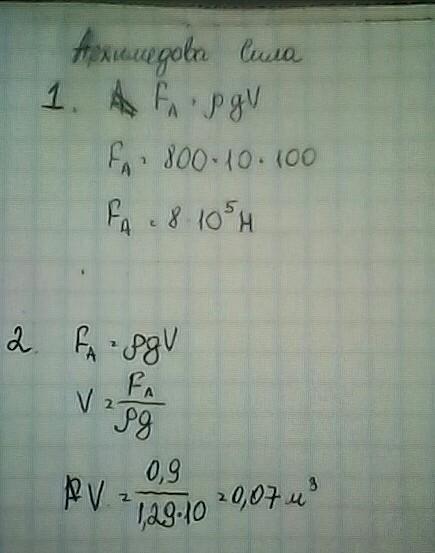 Архимедова сила
1. F_A = ρgV
F_A = 800·10·100
F_A = 8·10⁵ Н
2. F_A = ρgV
V = F_A / ρg
V = 0,9 / 1,29·10 = 0,07 м³